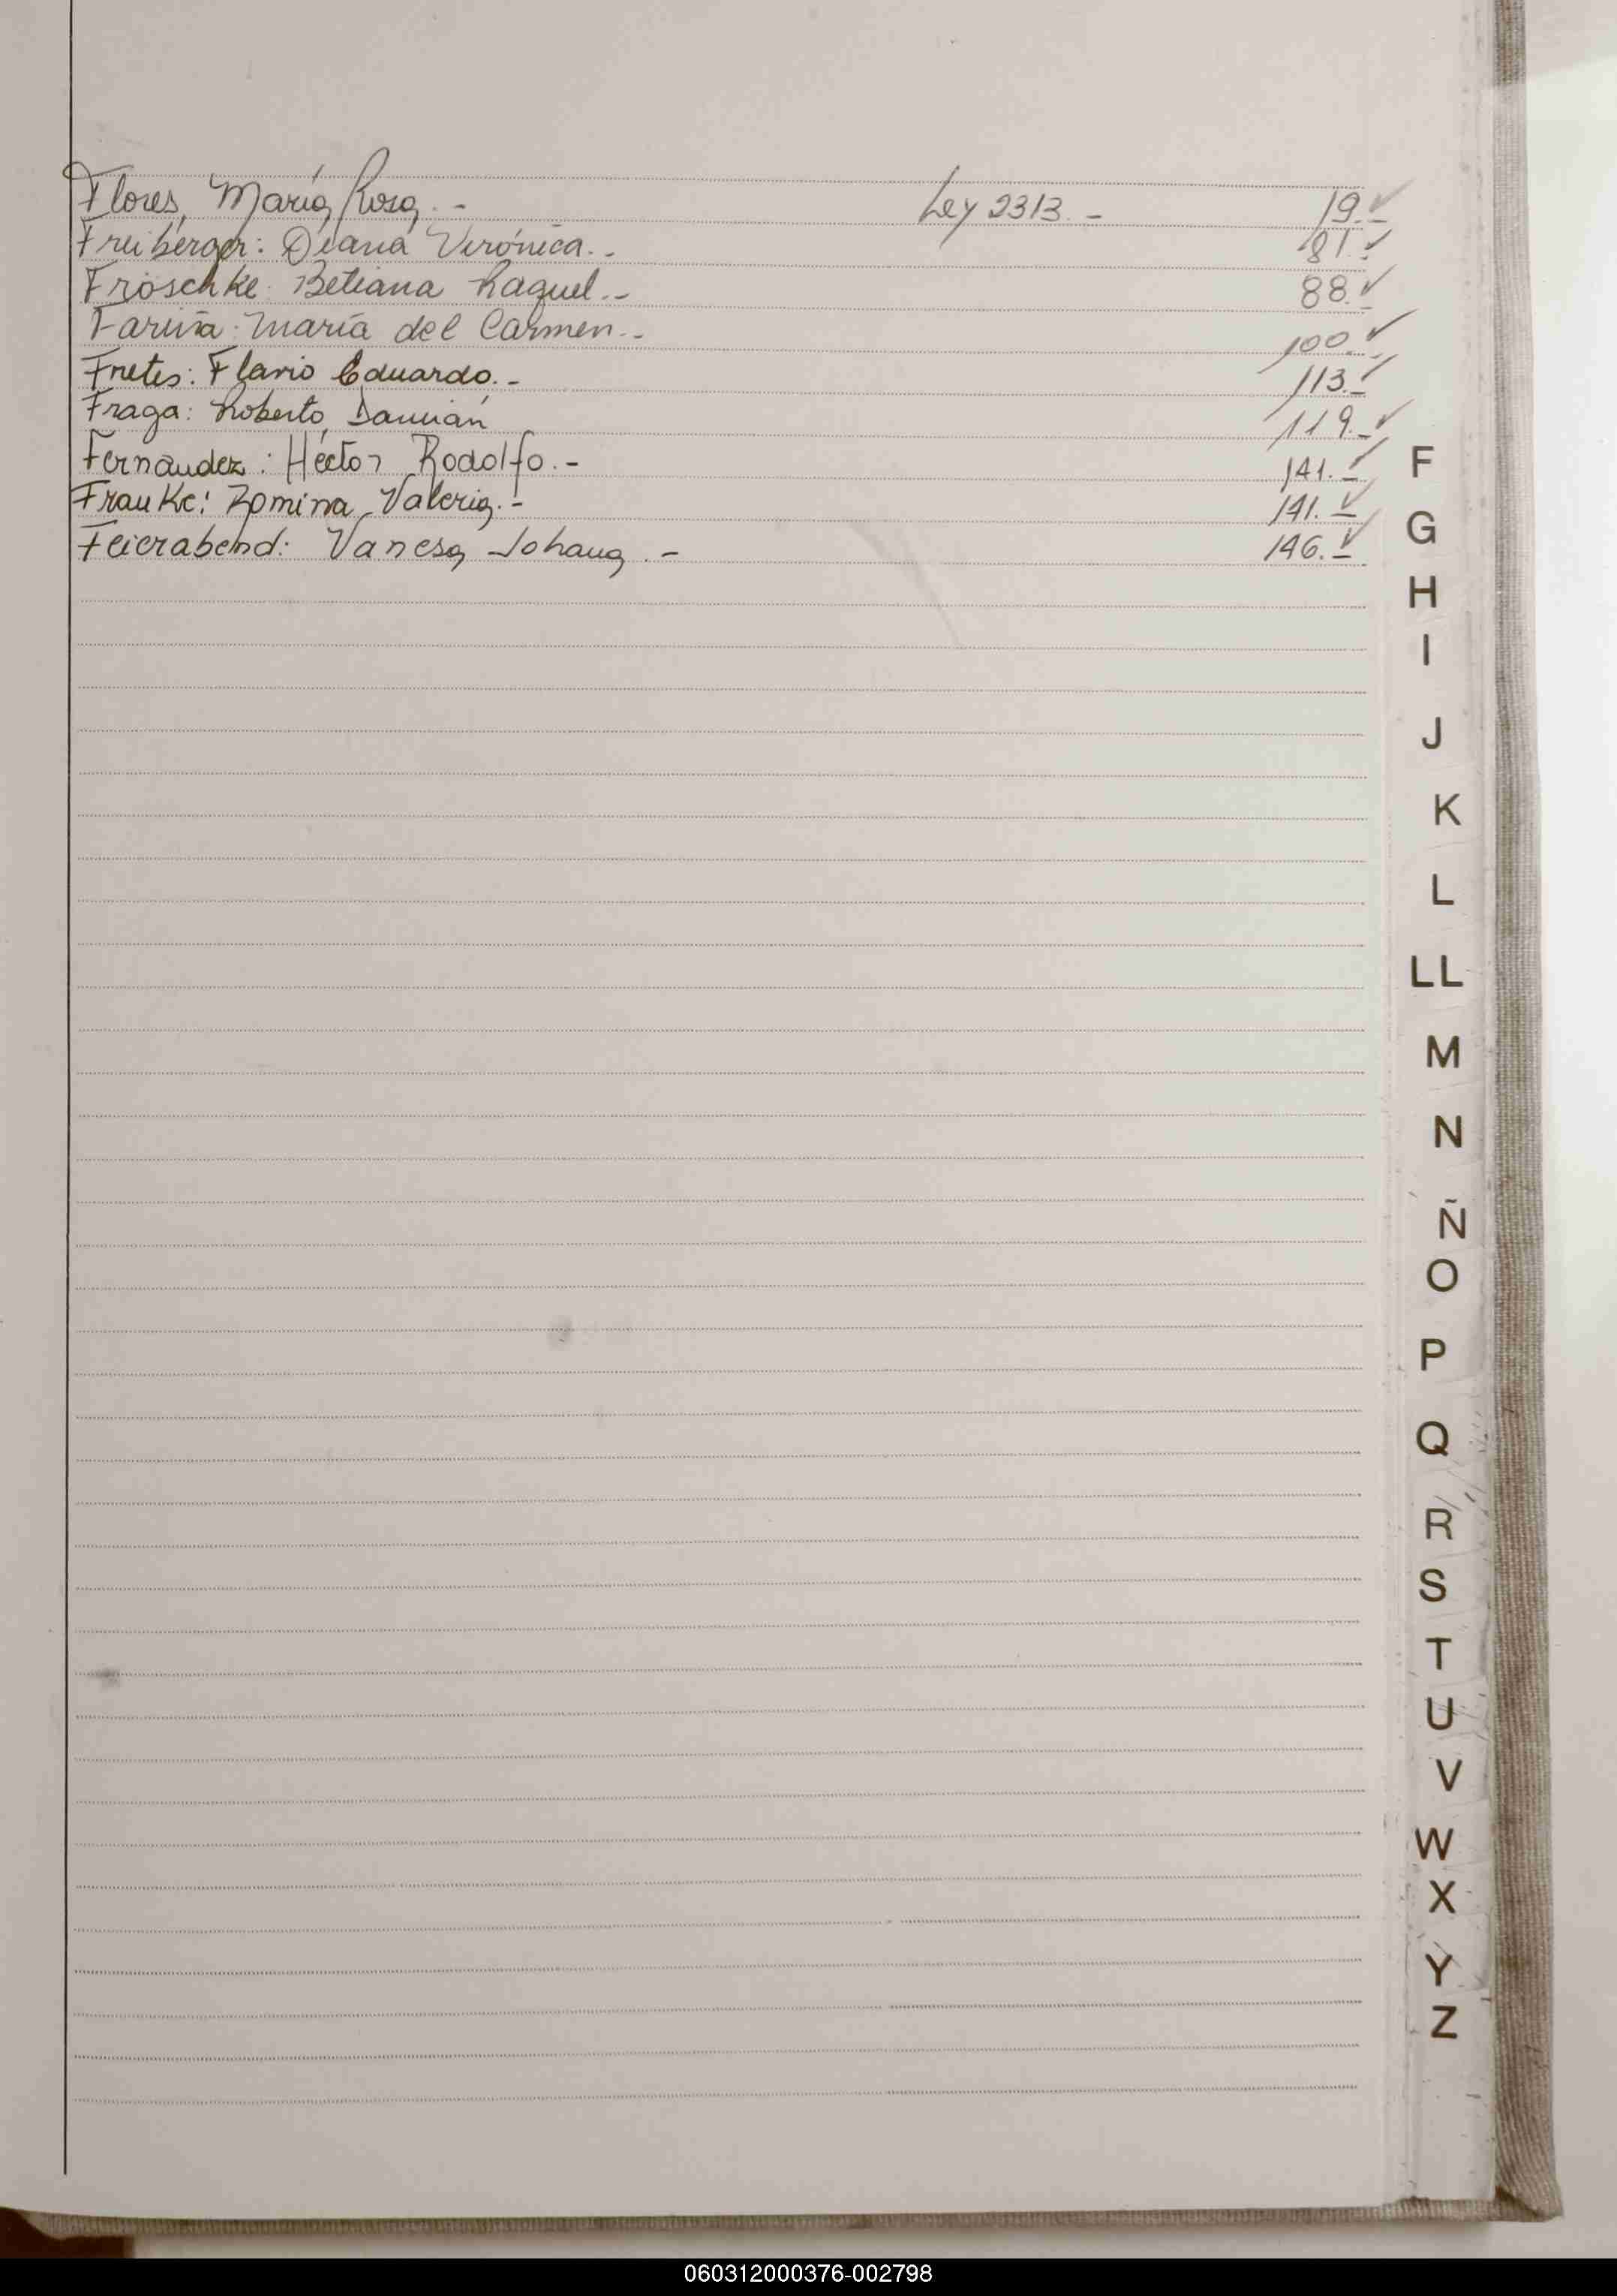 Flores, María Rosa.- Ley 2313.- 19.-✓
Freiberger: Diana Verónica.- 81.-✓
Fröschke: Betiana Raquel.- 88.-✓
Fariña: María del Carmen.- 100.-✓
Fretes: Flavio Eduardo.- 113.-✓
Fraga: Roberto Damián 119.-✓
Fernández: Héctor Rodolfo.- 141.-✓
Franke: Romina Valeria.- 141.-✓
Feierabend: Vanesa Johana.- 146.-✓
F
G
H
I
J
K
L
LL
M
N
Ñ
O
P
Q
R
S
T
U
V
W
X
Y
Z
060312000376-002798